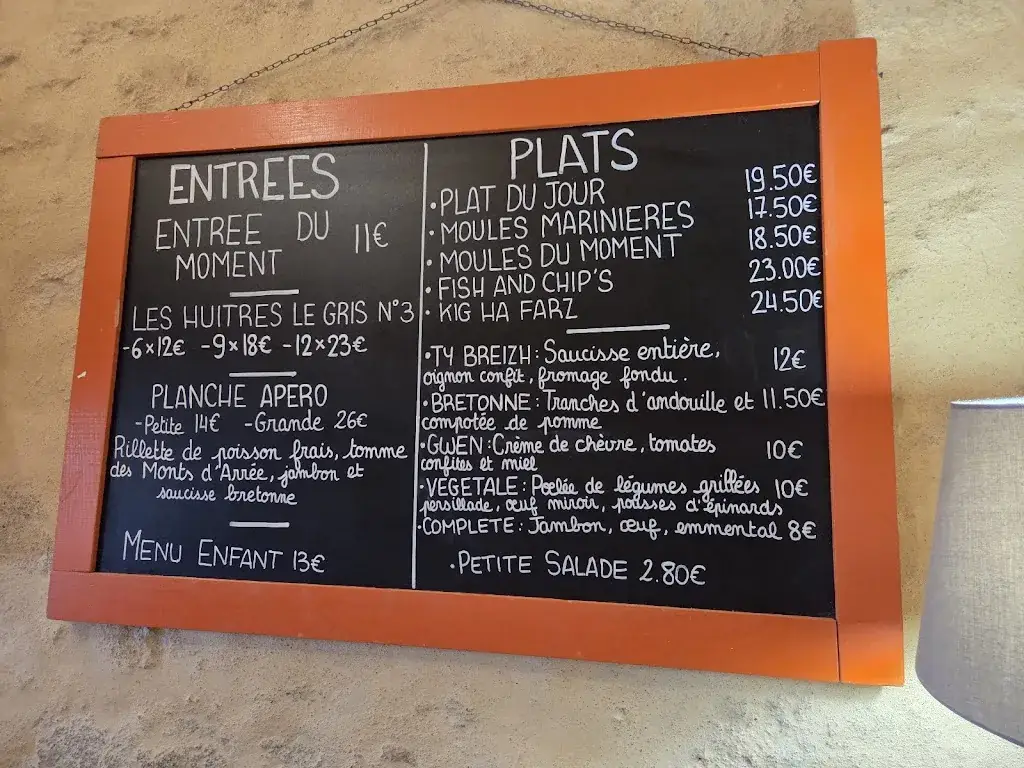 ENTREES
ENTREE DU
MOMENT 11€
LES HUITRES LE GRIS N°3
-6x12€ -9x18€ -12x23€
PLANCHE APERO
-Petite 14€ -Grande 26€
Rillette de poisson frais, tomme
des Monts d'Arrée, jambon et
saucisse bretonne
MENU ENFANT 13€
PLATS
•PLAT DU JOUR 19.50€
•MOULES MARINIERES 17.50€
•MOULES DU MOMENT 18.50€
•FISH AND CHIP'S 23.00€
•KIG HA FARZ 24.50€
•TY BREIZH: Saucisse entière, 12€
oignon confit, fromage fondu.
•BRETONNE: Tranches d'andouille et 11.50€
compotée de pomme
•GWEN: Crème de chèvre, tomates 10€
confites et miel
•VEGETALE: Poelée de légumes grillées 10€
persillade, œuf miroir, pousses d'épinards
•COMPLETE: Jambon, œuf, emmental 8€
•PETITE SALADE 2.80€